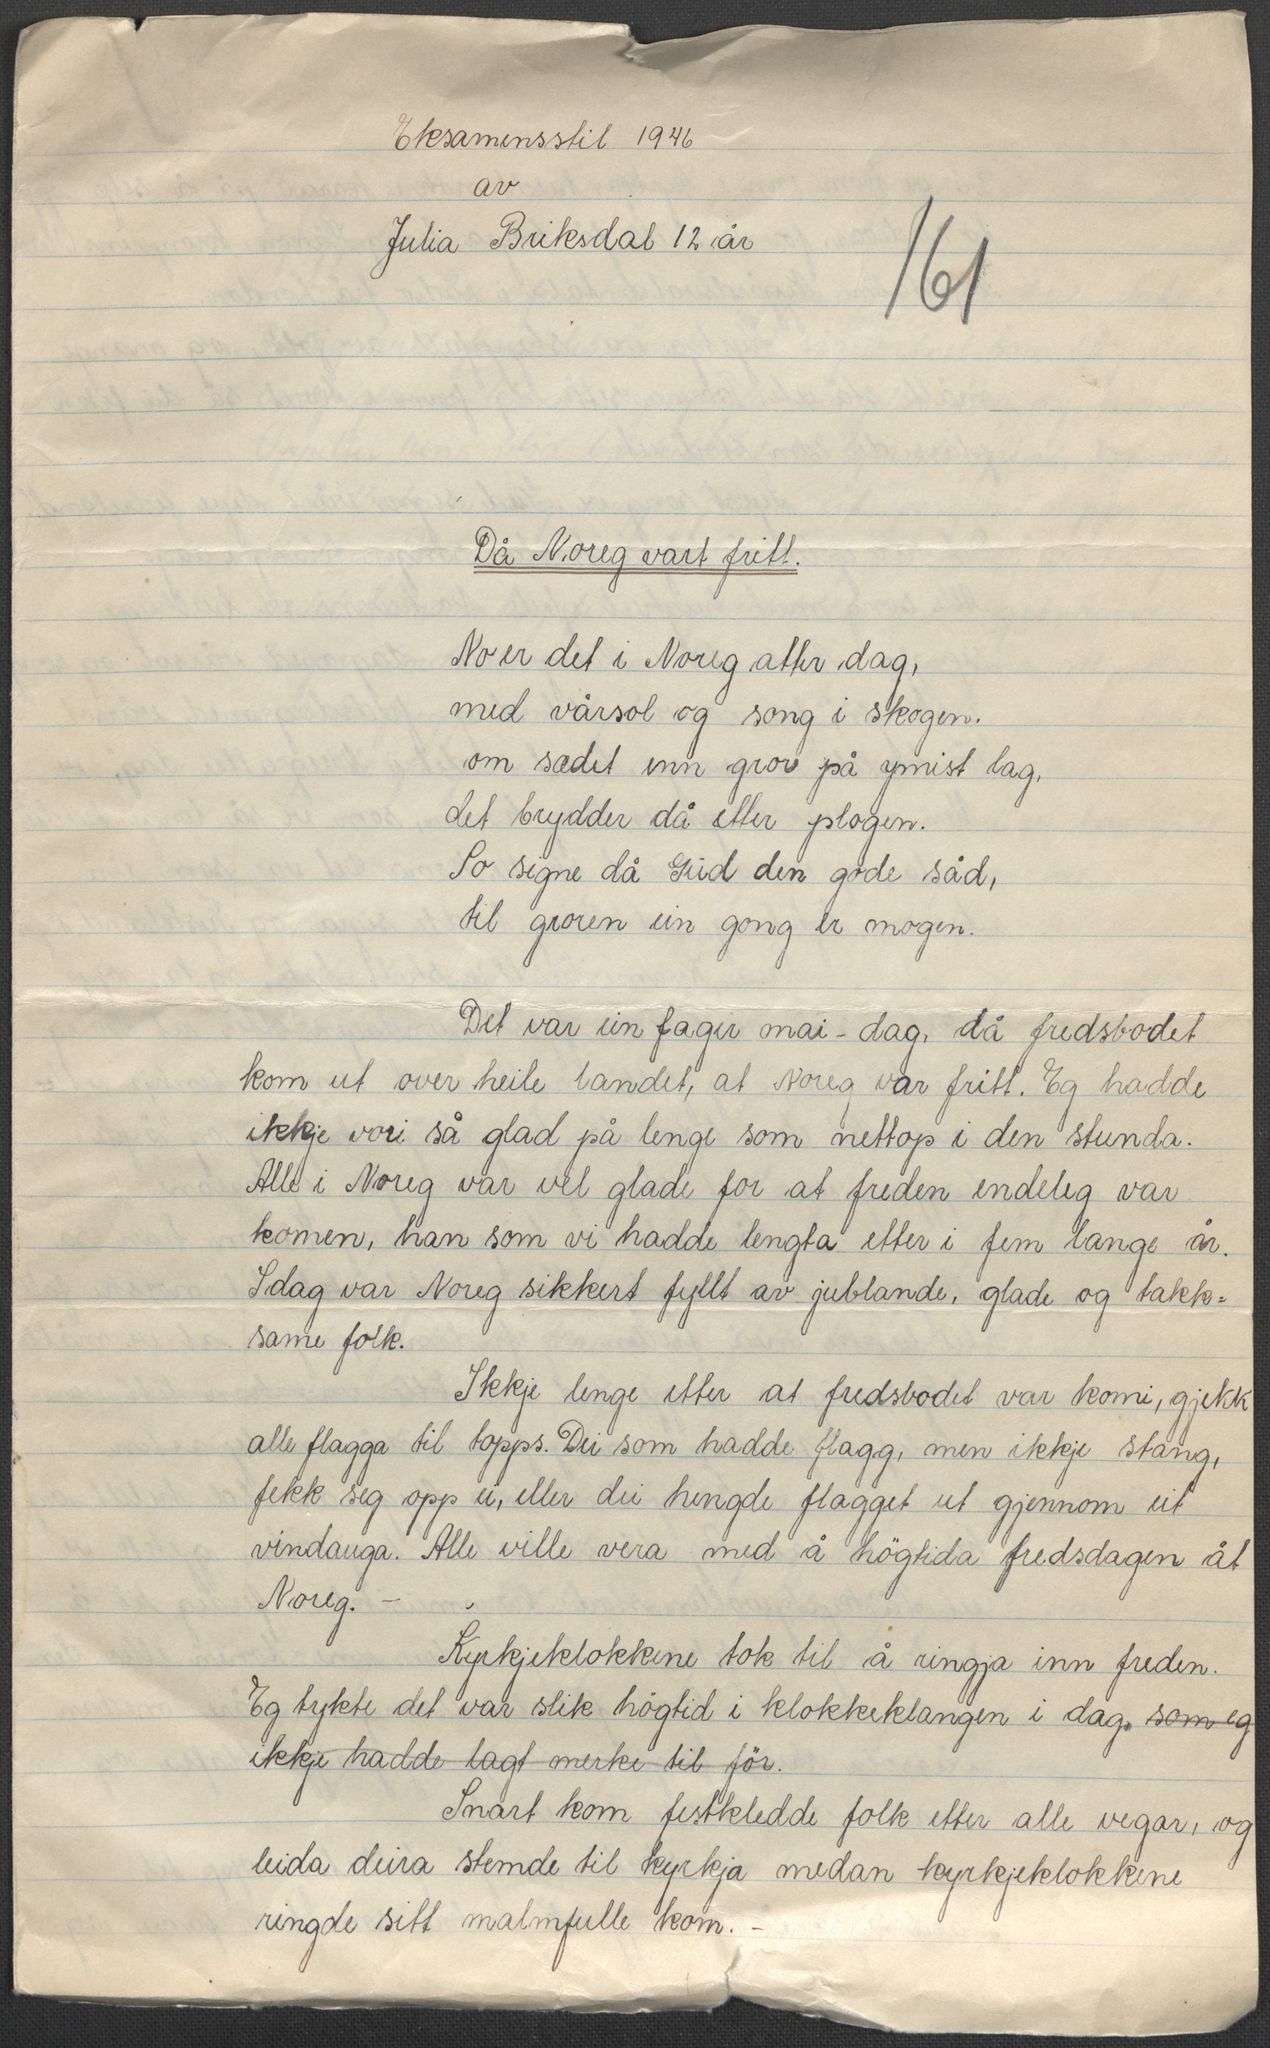 Eksamensstil 1946
av
Julia Briksdal 12 år
161
Då Noreg vart fritt.
No er det i Noreg atter dag,
med vårsol og song i skogen.
om sædet enn gror på ymist lag,
det brydder då etter plogen.
So signe då Gud den gode såd,
til groren ein gong er mogen.
Det var ein fager mai-dag, då fredsbodet
kom ut over heile landet, at Noreg var fritt. Eg hadde
ikkje vori så glad på lenge som nettop i den stunda.
Alle i Noreg var vel glade for at freden endeleg var
komen, han som vi hadde lengta etter i fem lange år.
I dag var Noreg sikkert fyllt av jublande, glade og takk=
same folk.
Ikkje lenge etter at fredsbodet var komi, gjekk
alle flagga til topps. Dei som hadde flagg, men ikkje stang,
fekk seg opp ei, eller dei hengde flagget ut gjennom eit
vindauga. Alle ville vera med å högtida fredsdagen åt
Noreg. –
Kyrkjeklokkene tok til å ringja inn freden.
Eg tykte det var slik högtid i klokkeklangen i dag. som eg
ikkje hadde lagt merke til för.
Snart kom festkledde folk etter alle vegar, og
leida deira stemde til kyrkja medan kyrkjeklokkene
ringde sitt malmfulle kom. –